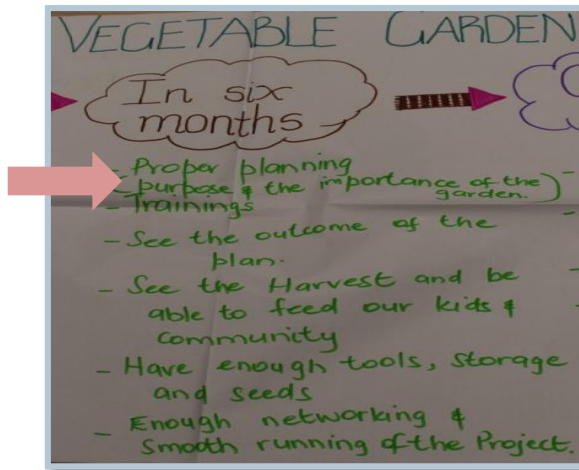 VEGETABLE GARDEN
In six
months
- Proper planning
- purpose & the importance of the
garden.)
- Trainings
- See the outcome of the
plan.
- See the Harvest and be
able to feed our kids &
community
- Have enough tools, storage
and seeds
- Enough networking &
Smooth running of the Project.